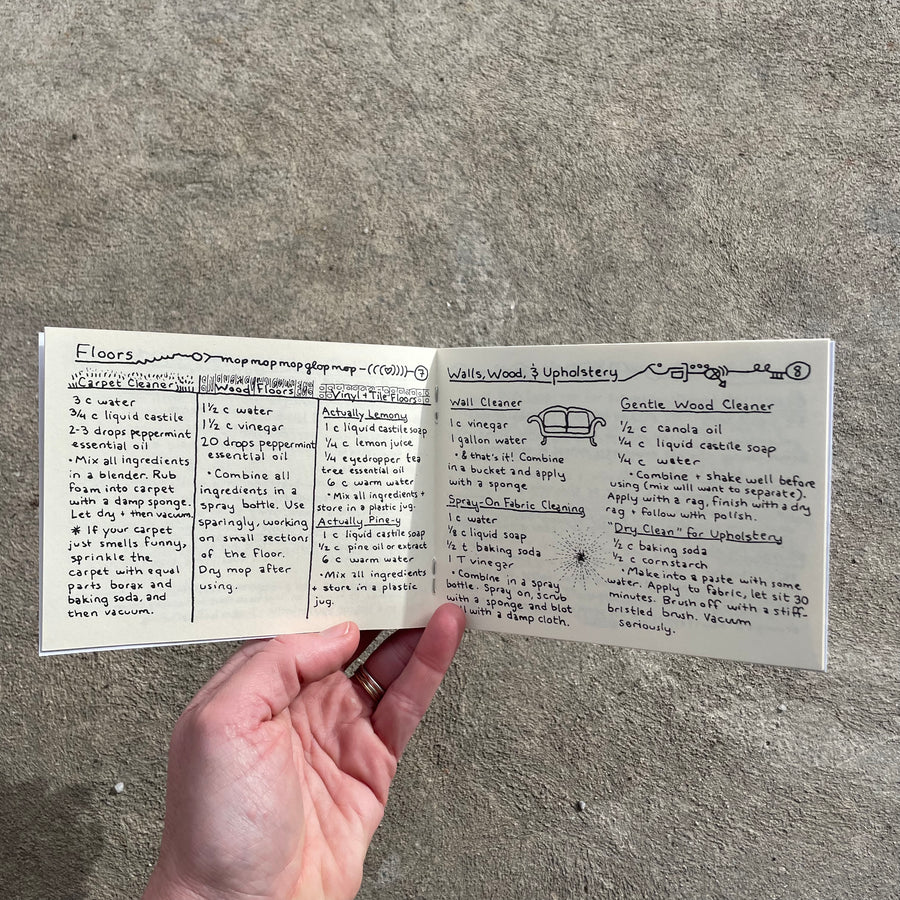 Floors mop mop mop glop mop 7
Carpet Cleaner
3 c water
3/4 c liquid castile
2-3 drops peppermint
essential oil
• Mix all ingredients
in a blender. Rub
foam into carpet
with a damp sponge.
Let dry + then vacuum.
* If your carpet
just smells funny,
sprinkle the
carpet with equal
parts borax and
baking soda, and
then vacuum.
Wood Floors
1½ c water
1½ c vinegar
20 drops peppermint
essential oil
• Combine all
ingredients in a
spray bottle. Use
sparingly, working
on small sections
of the floor.
Dry mop after
using.
Vinyl + Tile Floors
Actually Lemony
1 c liquid castile soap
¼ c lemon juice
¼ eyedropper tea
tree essential oil
6 c warm water
• Mix all ingredients +
store in a plastic jug.
Actually Pine-y
1 c liquid castile soap
½ c pine oil or extract
6 c warm water
• Mix all ingredients
+ store in a plastic
jug.
Walls, Wood, & Upholstery 8
Wall Cleaner
1 c vinegar
1 gallon water
• & that's it! Combine
in a bucket and apply
with a sponge
Spray-On Fabric Cleaning
1 c water
⅛ c liquid soap
½ t baking soda
1 T vinegar
• Combine in a spray
bottle. Spray on, scrub
with a sponge and blot
with a damp cloth.
Gentle Wood Cleaner
½ c canola oil
¼ c liquid castile soap
¼ c water
• Combine + shake well before
using (mix will want to separate).
Apply with a rag, finish with a dry
rag + follow with polish.
"Dry Clean" for Upholstery
½ c baking soda
½ c cornstarch
• Make into a paste with some
water. Apply to fabric, let sit 30
minutes. Brush off with a stiff-
bristled brush. Vacuum
seriously.